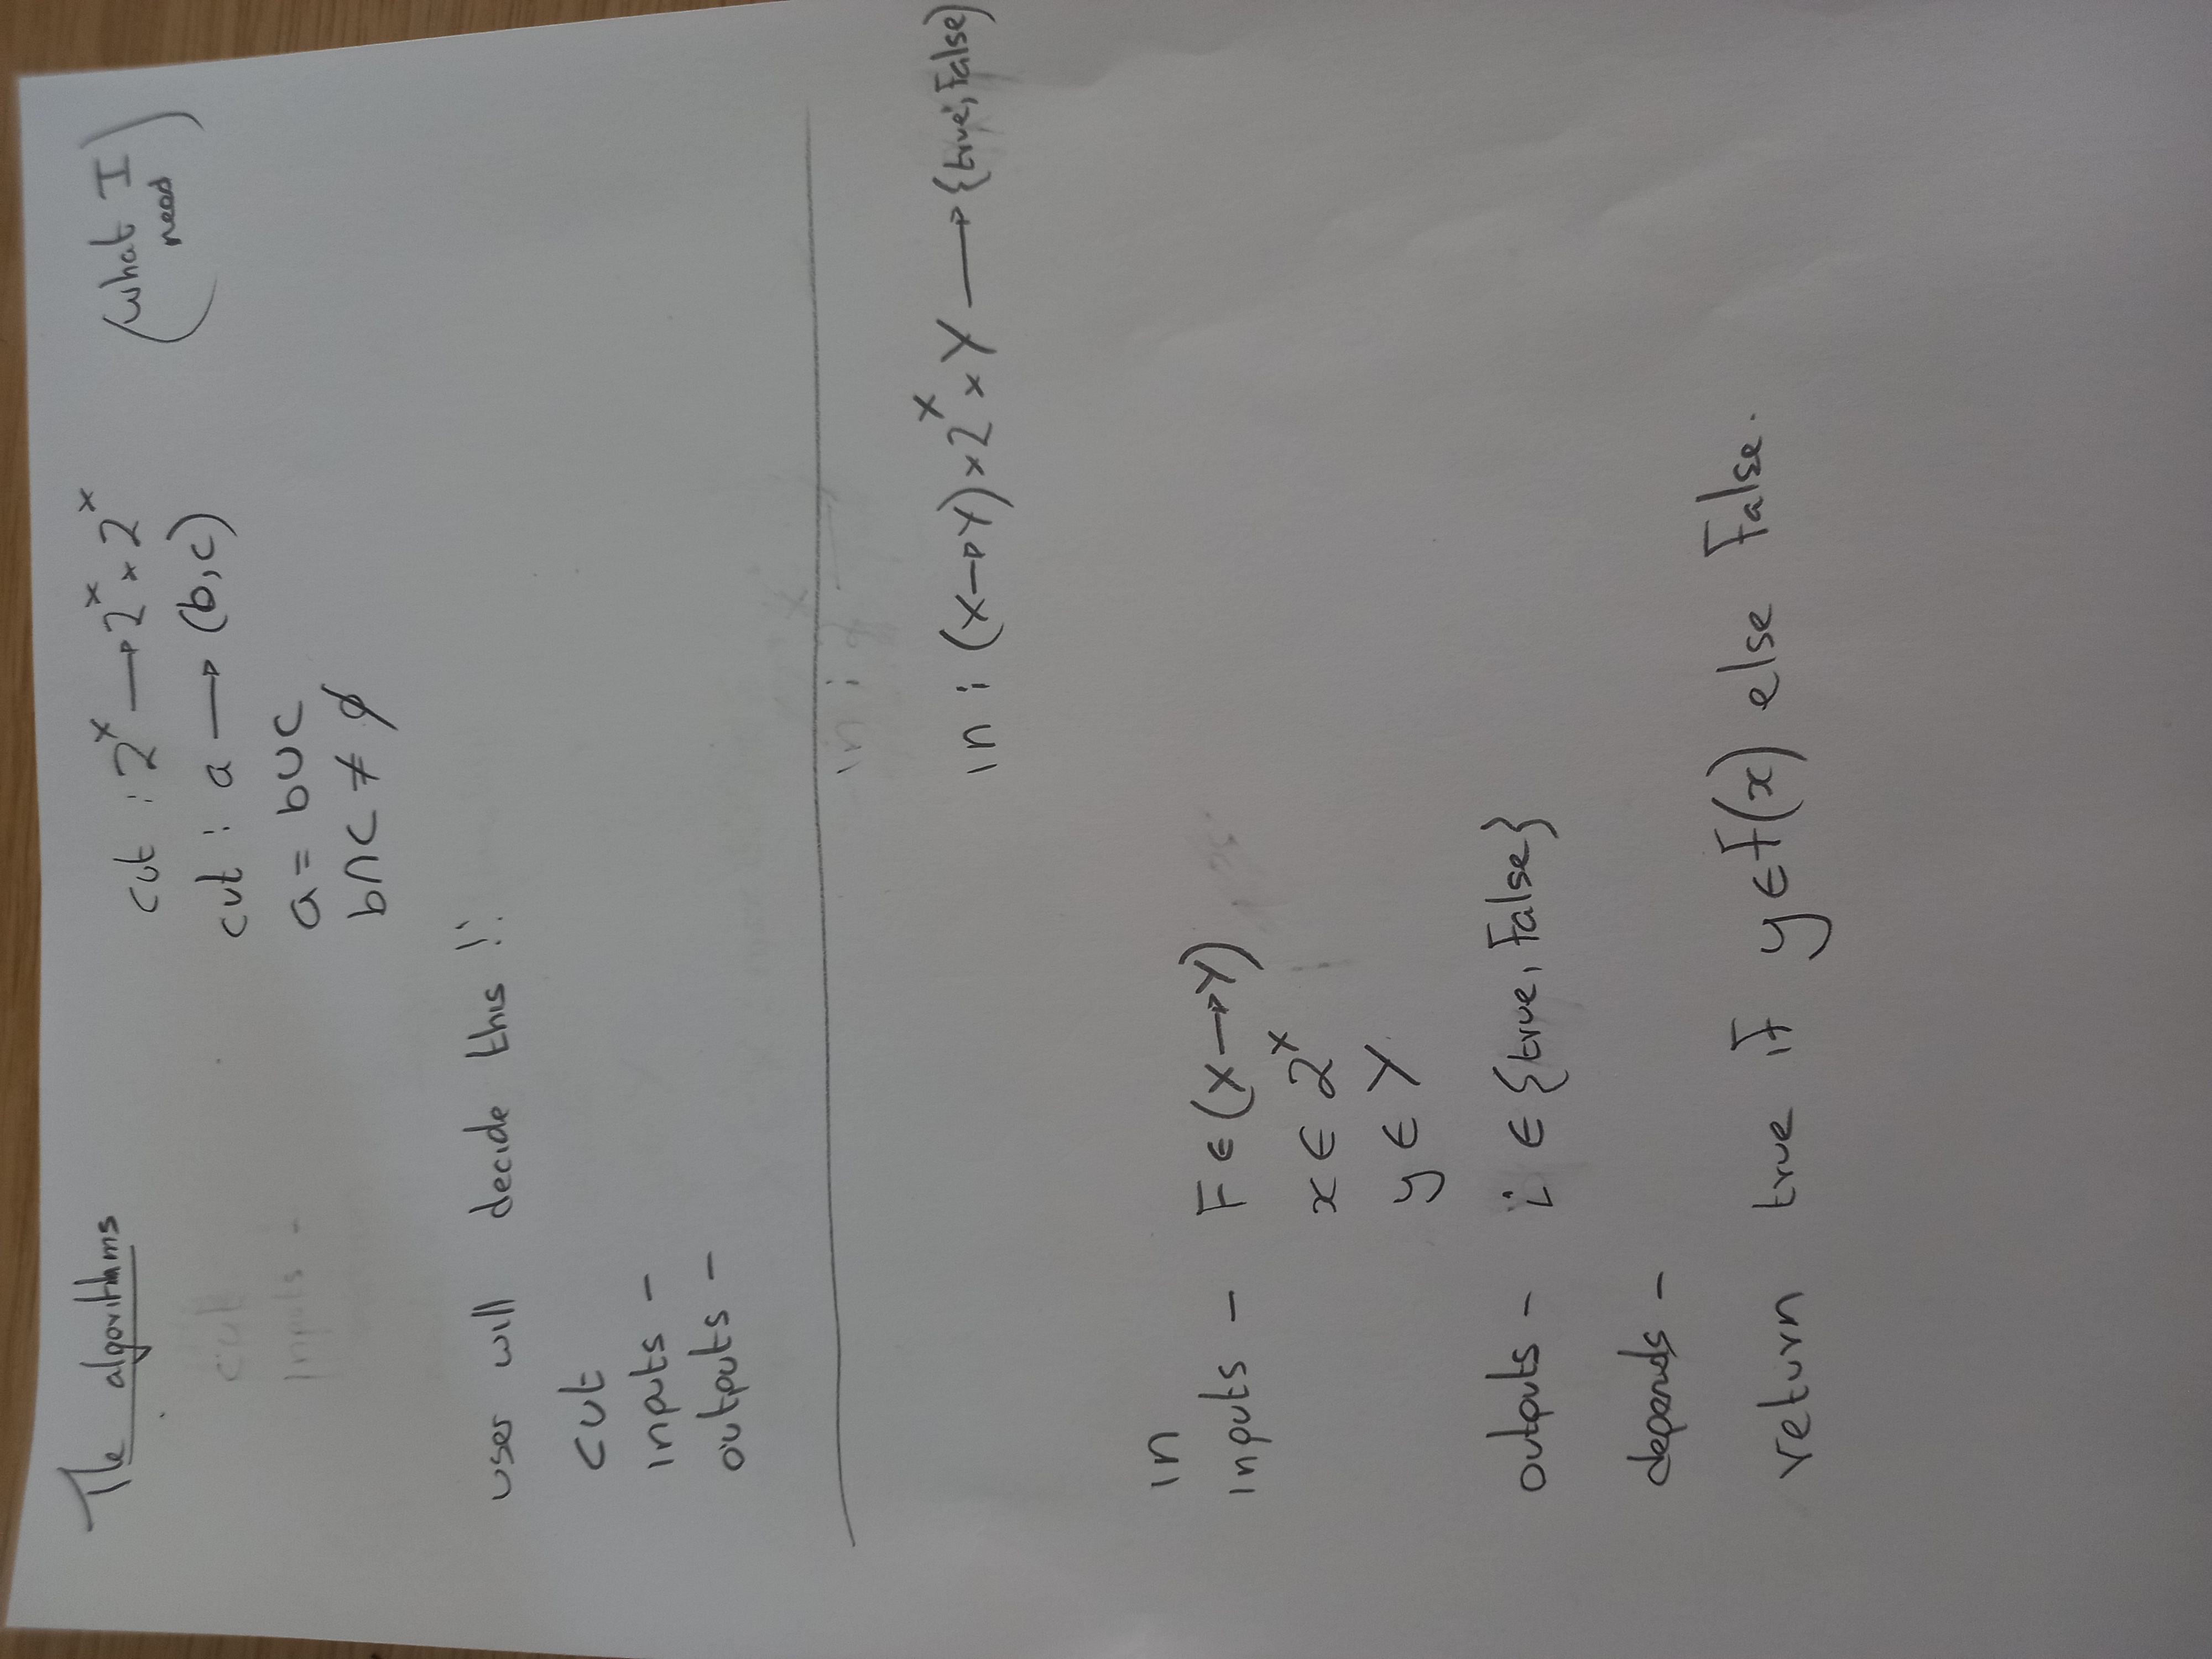 The algorithms
cut : 2^X → 2^X × 2^X
(what I
need)
cut : a → (b,c)
cut
a = b∪c
inputs -
b∩c ≠ ∅
user will decide this !!
cut
inputs -
outputs -
in :
in : (X→Y) × 2^X × Y → {true, False}
in
inputs - F ∈ (X→Y)
x ∈ 2^X
y ∈ Y
outputs - i ∈ {true, False}
depends -
return true if y ∈ F(x) else False.